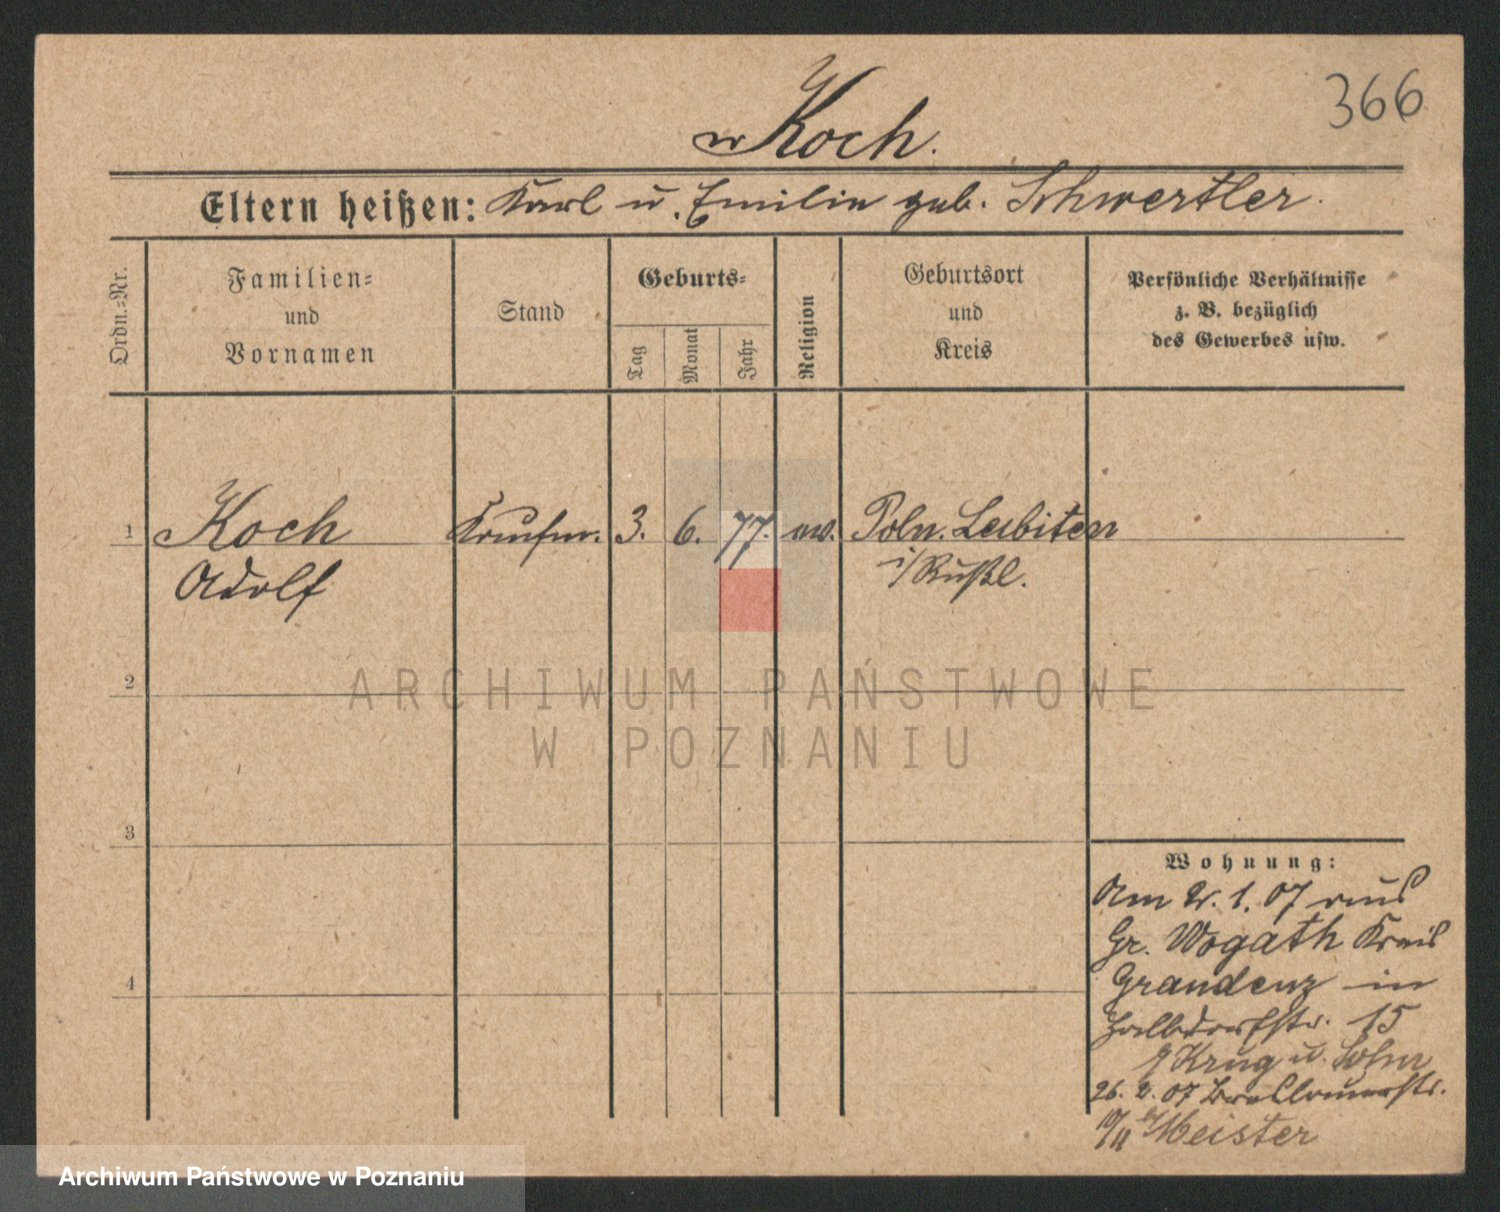 366
Koch.
Eltern heißen: Karl u. Emilie geb. Schwertler.
Ordn.-Nr.
Familien-
und
Vornamen
Stand
Geburts-
Tag
Monat
Jahr
Religion
Geburtsort
und
Kreis
Persönliche Verhältnisse
z. B. bezüglich
des Gewerbes usw.
1 Koch Kaufm. 3. 6. 77. ev. Poln. Leibitsch
Adolf i/Rußl.
2
ARCHIWUM PAŃSTWOWE
W POZNANIU
3
Wohnung:
Am 2. 1. 07 aus
Gr. Kreis
Graudenz in
Halbdorfstr. 15
Krug u. Sohn
26. 2. 07 Breslauerstr.
b/Meister
4
Archiwum Państwowe w Poznaniu